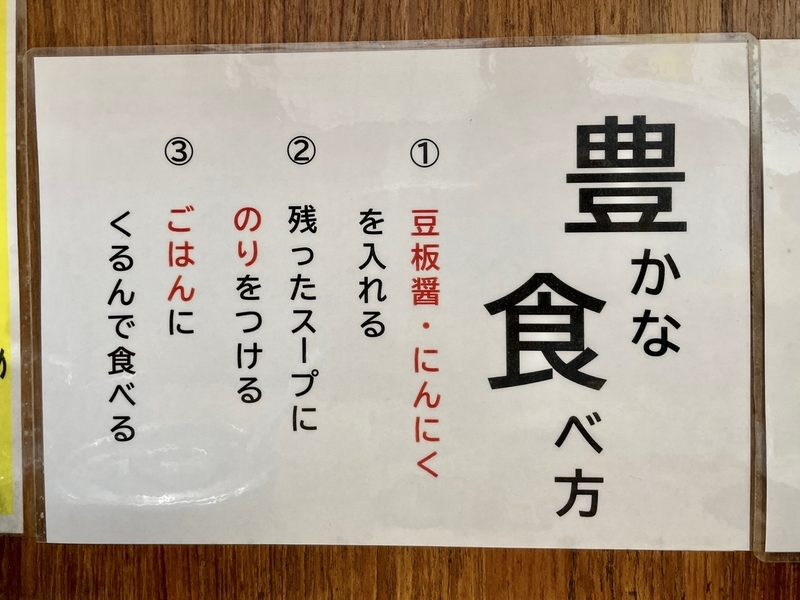 豊かな
食べ方
①
豆板醤・にんにく
を入れる
②
残ったスープに
のりをつける
③
ごはんに
くるんで食べる